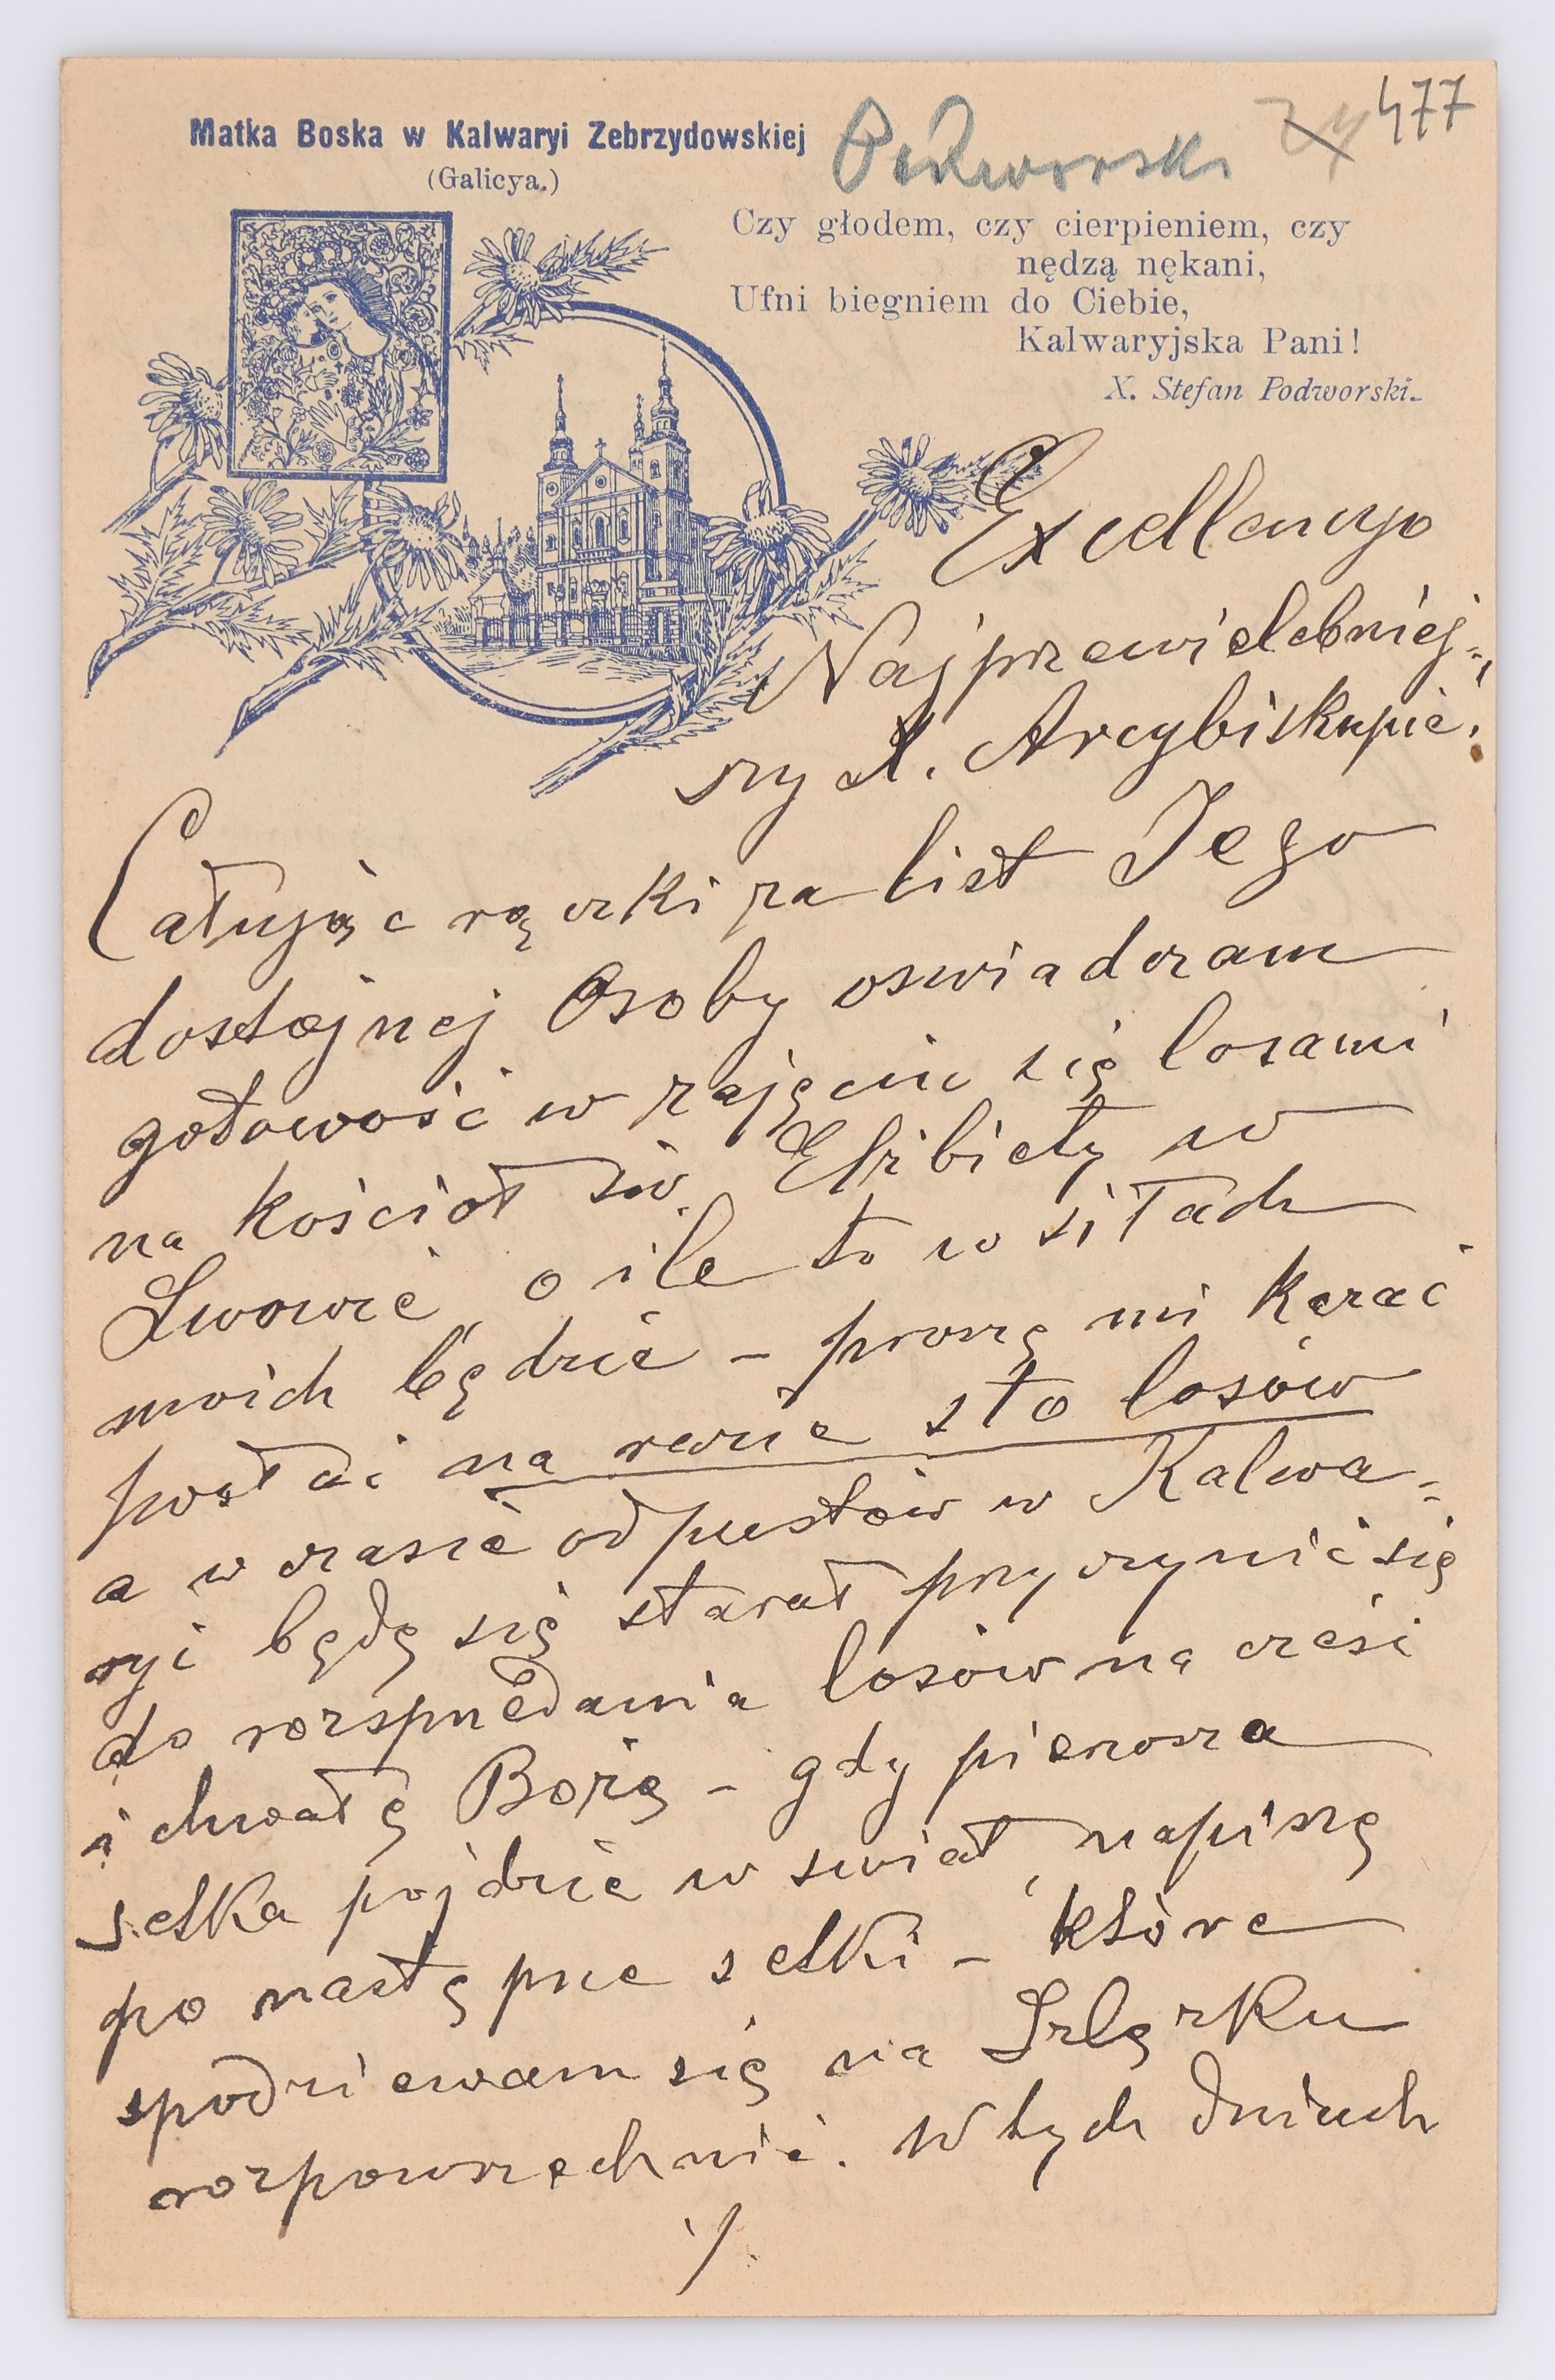 Matka Boska w Kalwaryi Zebrzydowskiej
(Galicya.)
Podworski
477
Czy głodem, czy cierpieniem, czy
nędzą nękani,
Ufni biegniem do Ciebie,
Kalwaryjska Pani!
X. Stefan Podworski.
Excellencyo
Najprzewielebniej-
szy X. Arcybiskupie!
Całując rączki za list Jego
dostojnej Osoby oswiadczam
gotowość w zajęciu się losami
na kościoł św. Elżbiety w
Lwowie, o ile to w siłach
moich będzie – proszę mi kazać
posłać na razie sto losów
a w czasie odpustów w Kalwa-
ryi będę się starał przyczynić się
do rozsprzedania losów na cześć
i chwałę Bożą – gdy pierwsza
setka pojdzie w swiat, napiszę
po następne setki – które
spodziewam się na Szląsku
rozpowszechnić. W tych dniach
./.